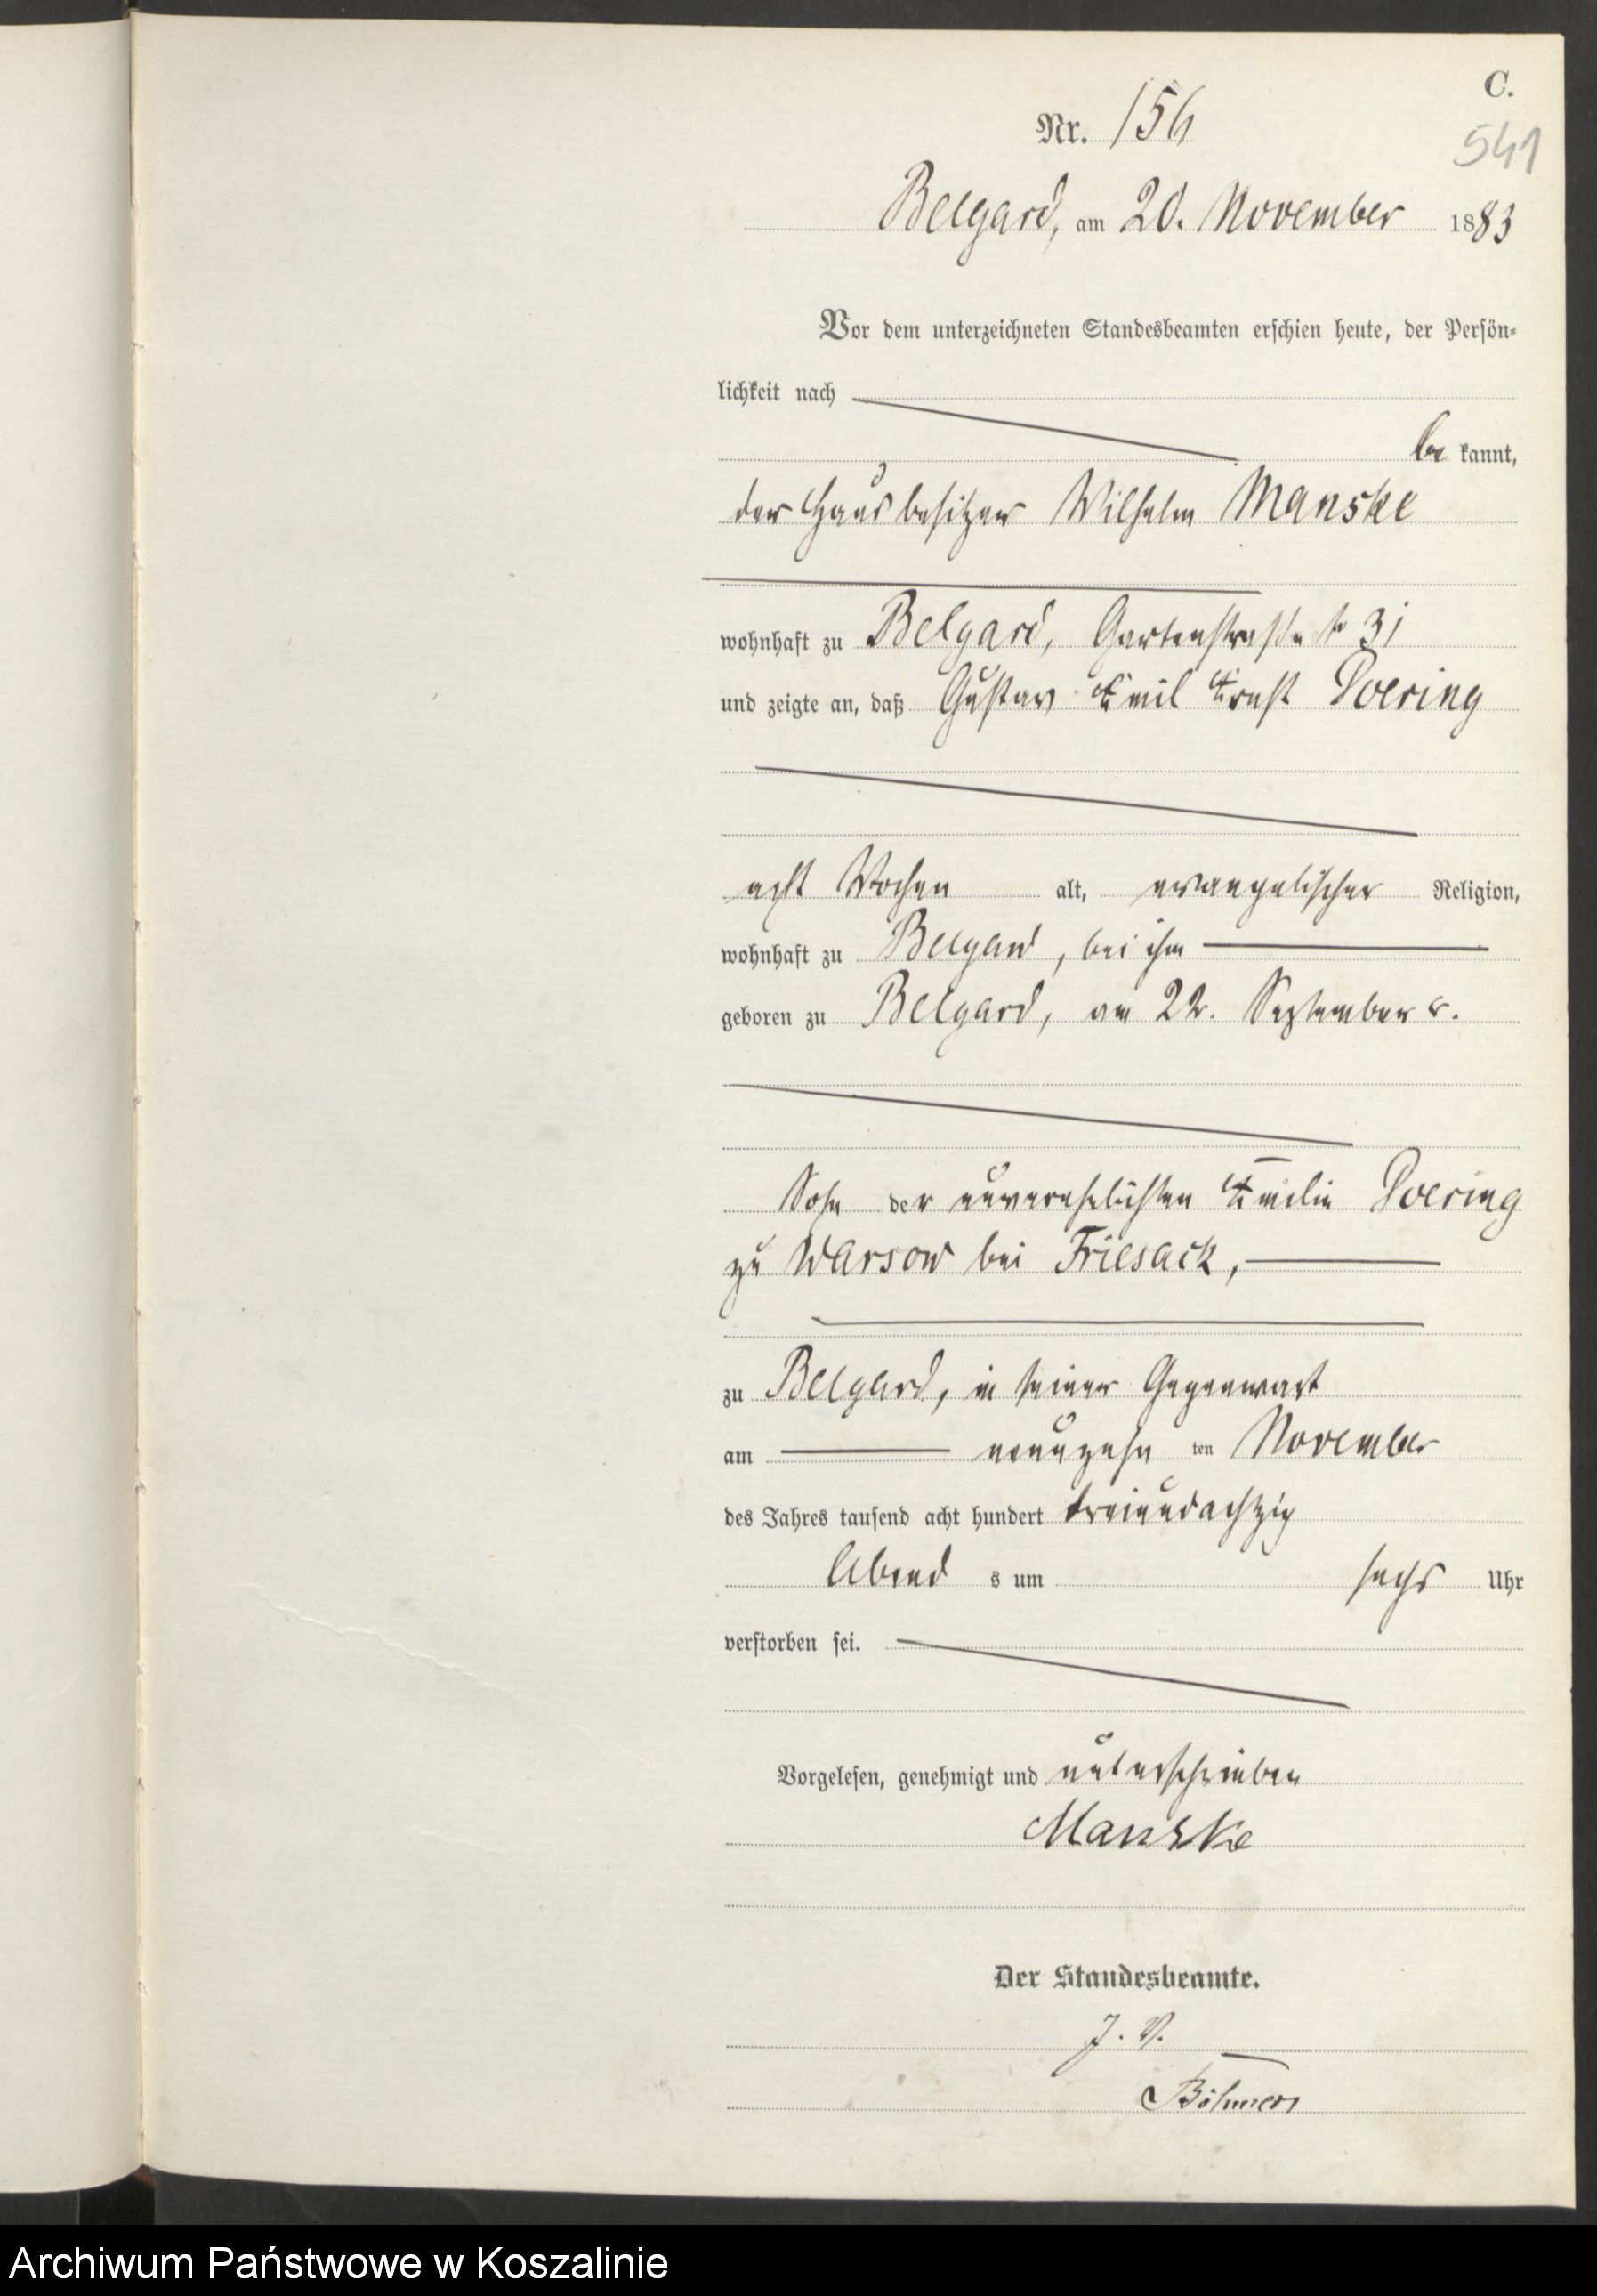 C.
Nr. 156
541
Belgard, am 20. November 1883
Vor dem unterzeichneten Standesbeamten erschien heute, der Persön-
lichkeit nach
be kannt,
der Hausbesitzer Wilhelm Manske
wohnhaft zu Belgard, Gartenstraße № 31
und zeigte an, daß Gustav Emil Ernst Doering
acht Wochen alt, evangelischer Religion,
wohnhaft zu Belgard, bei ihm
geboren zu Belgard, am 22. September c.
Sohn der unverehelichten Emilie Doering
zu Warsow bei Friesack,
zu Belgard, in seiner Gegenwart
am neunzehn ten November
des Jahres tausend acht hundert dreiundachtzig
Abend s um sechs Uhr
verstorben sei.
Vorgelesen, genehmigt und unterschrieben
Manske
Der Standesbeamte.
J. V.
Archiwum Państwowe w Koszalinie